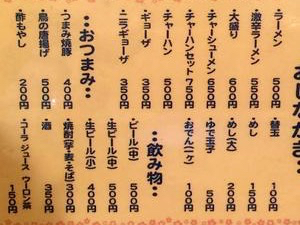 おしながき
・ラーメン 500円
・激辛ラーメン 500円
・大盛り 600円
・チャーシューメン 650円
・チャーハンセット 750円
・チャーハン 500円
・ギョーザ 350円
・ニラギョーザ 350円
・替玉 100円
・めし 150円
・めし(大) 200円
・ゆで玉子 50円
・おでん(一ケ) 100円
：おつまみ：
・つまみ焼豚 400円
・鳥の唐揚げ 500円
・酢もやし 200円
：飲み物：
・ビール(中) 500円
・生ビール(中) 500円
・生ビール(小) 400円
・焼酎(芋・麦・そば) 300円
・酒 350円
・コーラ ジュース ウーロン茶 150円